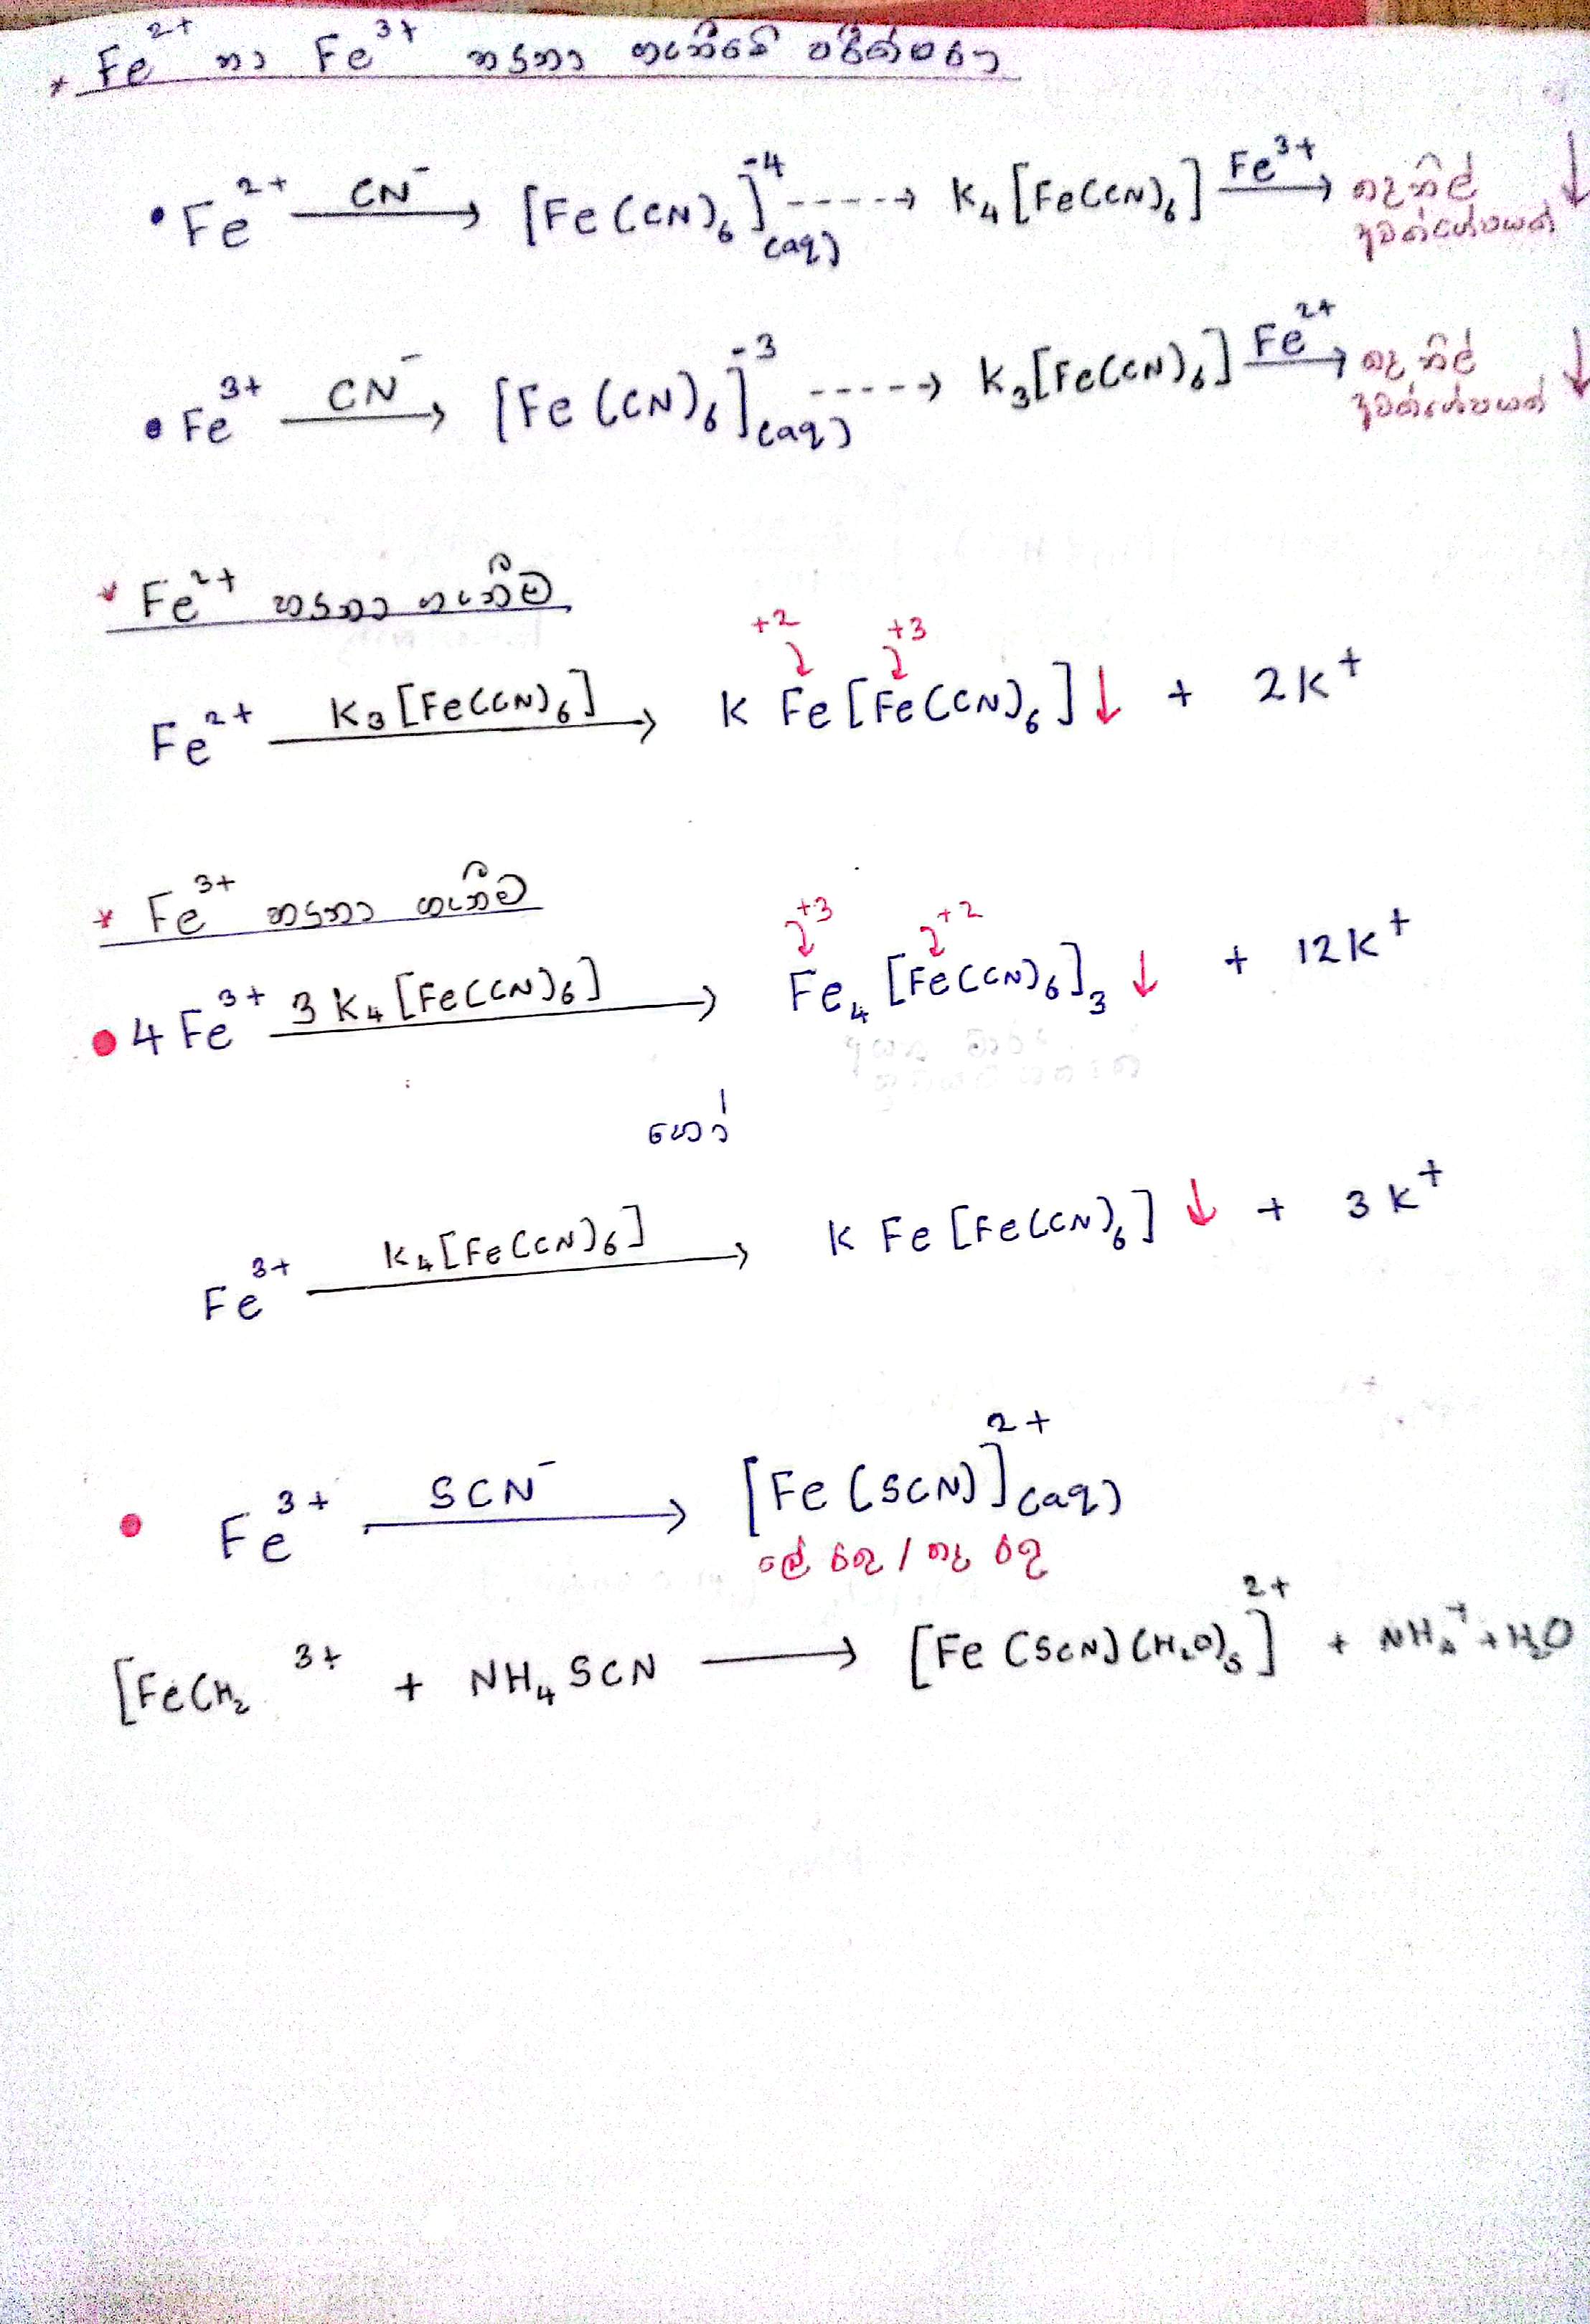 * Fe²⁺ හා Fe³⁺ හඳුනා ගැනීමේ පරීක්ෂණ
• Fe²⁺ —CN⁻→ [Fe(CN)₆]⁻⁴(aq) -----→ K₄[Fe(CN)₆] —Fe³⁺→ තද නිල් අවක්ෂේපයක් ↓
• Fe³⁺ —CN⁻→ [Fe(CN)₆]⁻³(aq) -----→ K₃[Fe(CN)₆] —Fe²⁺→ තද නිල් අවක්ෂේපයක් ↓
* Fe²⁺ හඳුනා ගැනීම
+2 +3
Fe²⁺ —K₃[Fe(CN)₆]→ K Fe[Fe(CN)₆]↓ + 2K⁺
* Fe³⁺ හඳුනා ගැනීම
+3 +2
• 4Fe³⁺ —3K₄[Fe(CN)₆]→ Fe₄[Fe(CN)₆]₃ ↓ + 12K⁺
හෝ
Fe³⁺ —K₄[Fe(CN)₆]→ K Fe[Fe(CN)₆] ↓ + 3K⁺
• Fe³⁺ —SCN⁻→ [Fe(SCN)]²⁺(aq)
ලේ රතු / තද රතු
[Fe(H₂ ³⁺ + NH₄SCN ⟶ [Fe(SCN)(H₂O)₅]²⁺ + NH₄⁺ + H₂O